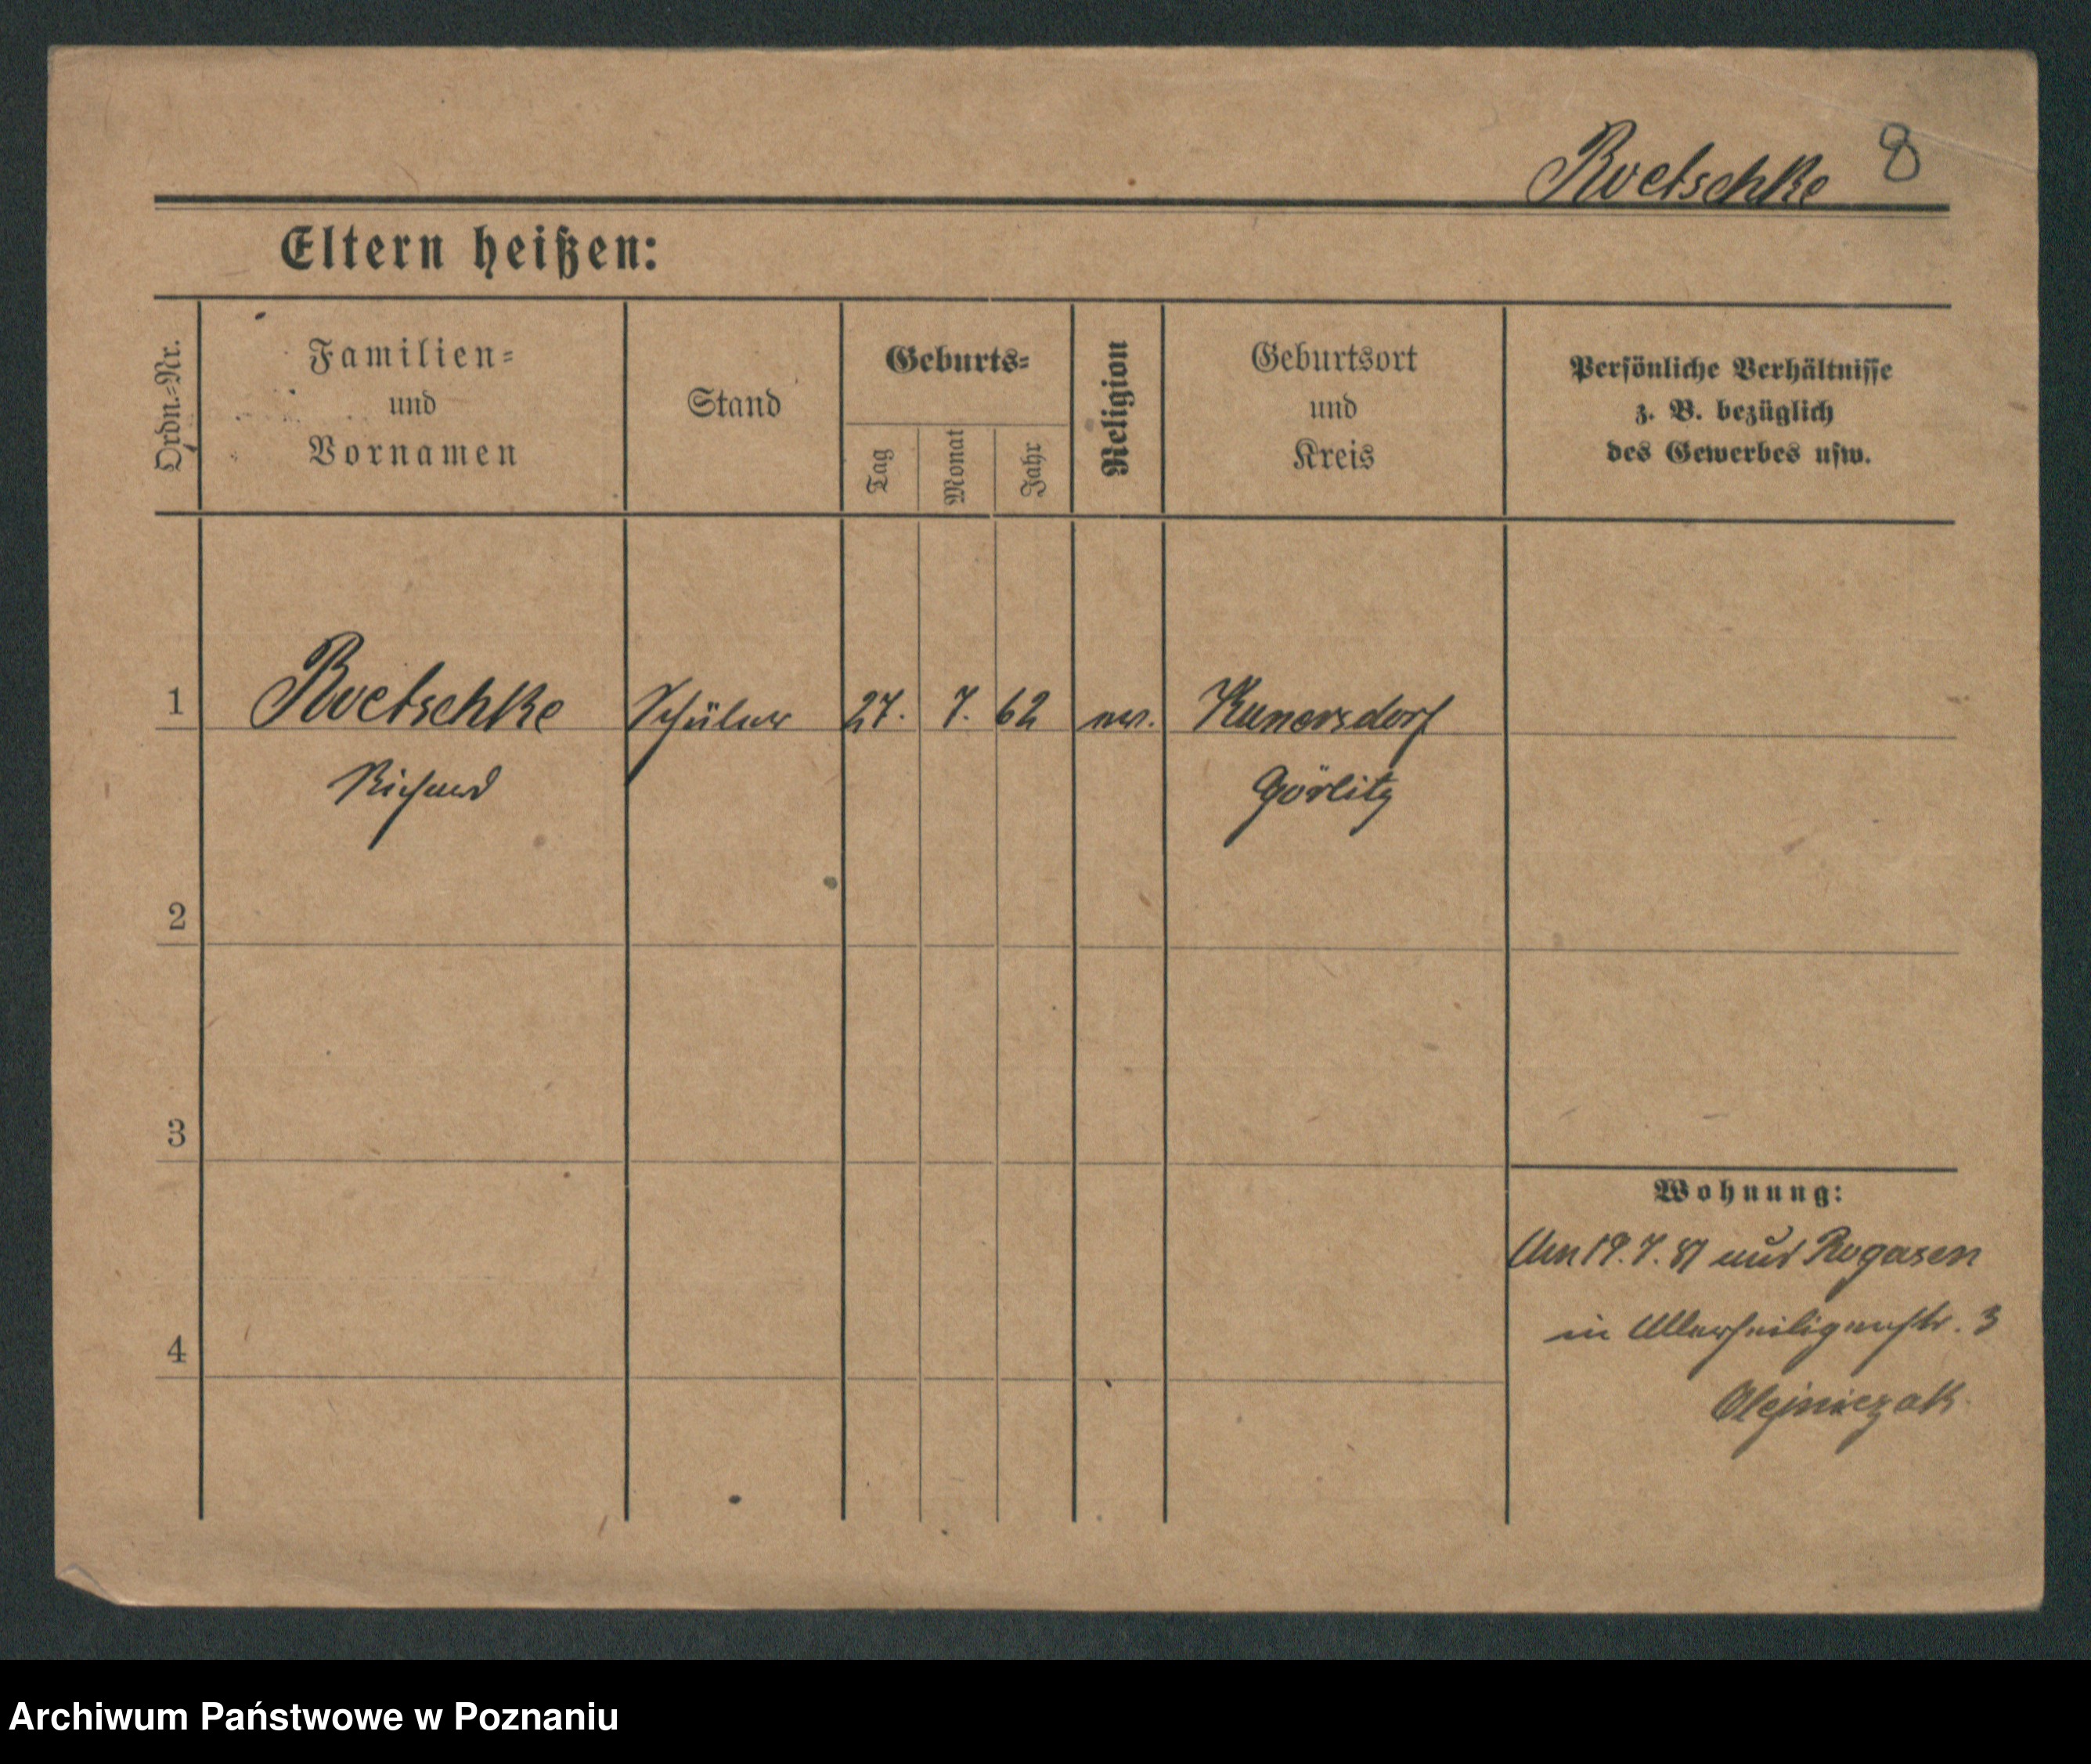 Roetschke 8
Eltern heißen:
Ordn.-Nr.
Familien-
und
Vornamen
Stand
Geburts-
Tag
Monat
Jahr
Religion
Geburtsort
und
Kreis
Persönliche Verhältnisse
z. B. bezüglich
des Gewerbes usw.
1 Roetschke Schüler 27. 7. 62 Kunersdorf
Richard Görlitz
2
3
4
Wohnung:
19.7.81 aus Rogasen
in Allerheiligenstr. 3
Olejniczak
Archiwum Państwowe w Poznaniu